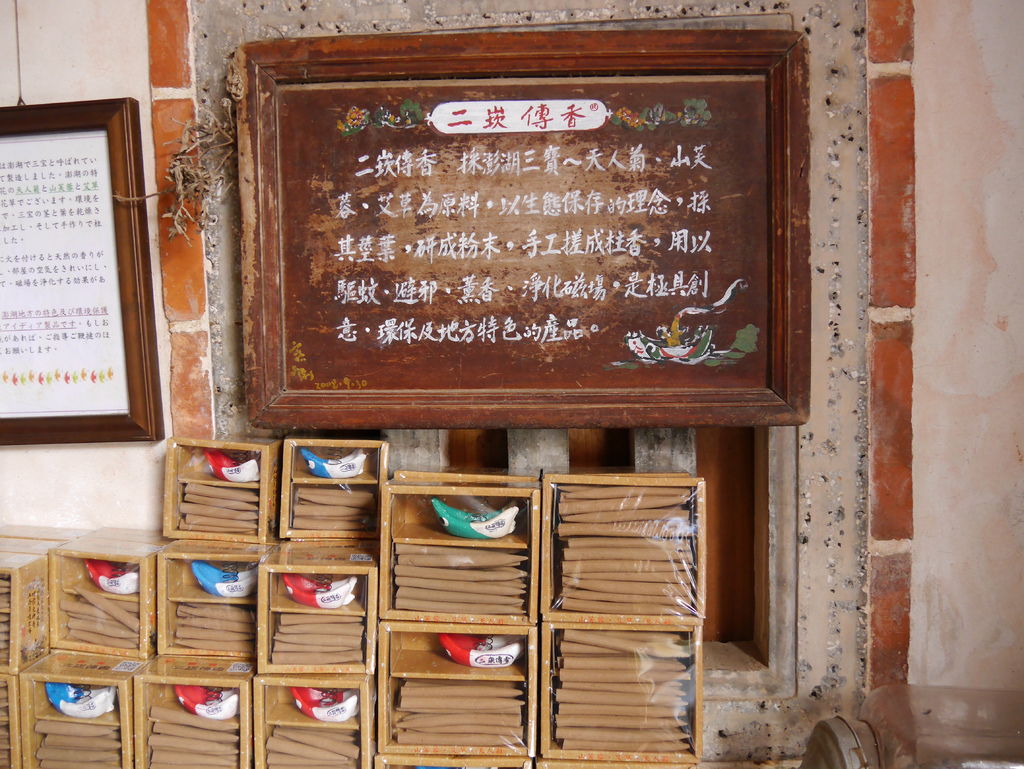 二崁傳香
二崁傳香 採澎湖三寶～天人菊、山芙
蓉、艾草為原料，以生態保存的理念，採
其莖葉，研成粉末，手工搓成柱香，用以
驅蚊、避邪、薰香、淨化磁場。是極具創
意、環保及地方特色的產品。
2008.9.30
は澎湖で三宝と呼ばれてい
て製造しました。澎湖の特
花の天人菊と山芙蓉と艾草
花草でございます。環境を
で、三宝の茎と葉を乾燥さ
に加工し、そして手作りで柱
した。
に火を付けると天然の香りが
し、部屋の空気をきれいにし、
て、磁場を浄化する効果があ
澎湖地方の特色及び環境保護
アイディア製品です。もしお
があれば、ご指導ご鞭撻のほ
お願いします。
二崁傳香